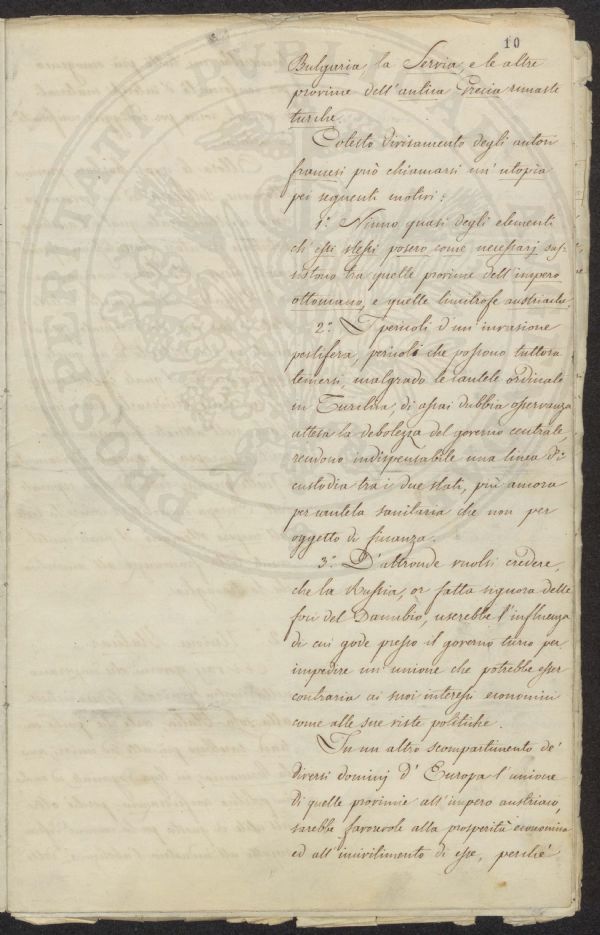 10
Bulgaria, la Servia, e le altre
provincie dell'antica Grecia rimaste
turche.
Cotesto divisamento degli autori
francesi può chiamarsi un'utopia
pei seguenti motivi:
1.° Niuno quasi degli elementi
ch'essi stessi posero come necessarj sus=
sistono tra quelle provincie dell'impero
ottomano, e quelle limitrofe austriache.
2.° I pericoli d'un'invasione
pestifera, pericoli che possono tuttora
temersi, malgrado le cautele ordinate
in Turchia, di assai dubbia osservanza
attesa la debolezza del governo centrale,
rendono indispensabile una linea di
custodia tra i due stati, più ancora
per cautela sanitaria che non per
oggetto di finanza.
3.° D'altronde vuolsi credere,
che la Russia, or fatta signora delle
foci del Danubio, userebbe l'influenza
di cui gode presso il governo turco per
impedire un'unione che potrebbe esser
contraria ai suoi interessi economici
come alle sue viste politiche.
In un altro scompartimento de'
diversi dominj d'Europa l'unione
di quelle provincie all'impero austriaco,
sarebbe favorevole alla prosperità economica
ed all'incivilimento di esse, perchè